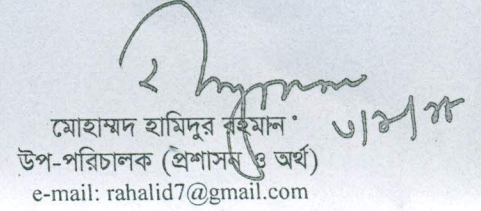 মোহাম্মদ হামিদুর রহমান
উপ-পরিচালক (প্রশাসন ও অর্থ)
e-mail: rahalid7@gmail.com